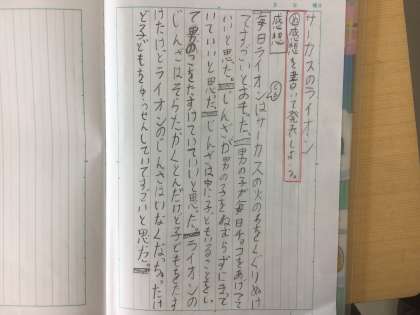 サーカスのライオン
め 感想を書いて発表しよう。
感想
毎日ライオンはサーカスの火の中をくぐりぬけ
てすごいとおもった。男の子が毎日チョコをあげてて
いいと思った。じんざが男の子をねむらずにまって
いていいと思った。じんざは中に子どもいることをい
て男のこをたすけていていいと思った。ライオンの
じんざはそらたかくとんだけど子どもをたす
けたけどライオンのじんざはいなくなっちゃっただけ
ど子どもをゆうせんしていてすごいと思った。